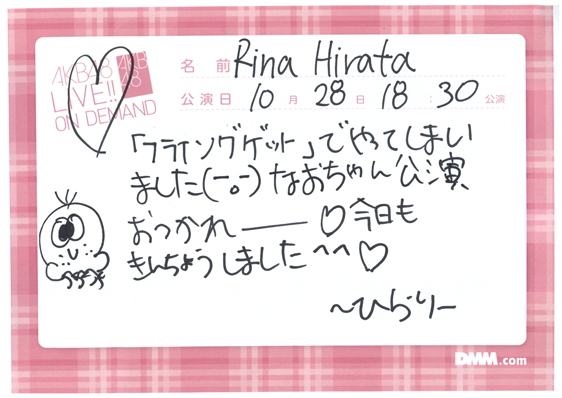 AKB48
LIVE!!
ON DEMAND
AKB
48
名前 Rina Hirata
公演日 10 月 28 日 18 : 30 公演
「フライングゲット」でやってしまい
ました(-。-) なおちゃん公演
おつかれー ♡ 今日も
きんちょうしました^^♡
〜ひらりー
DMM.com